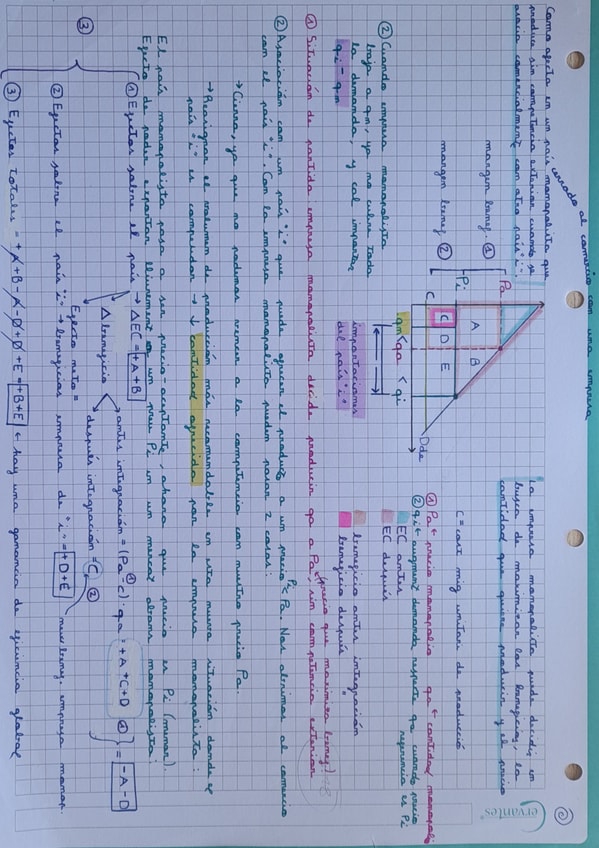 Cervantes
②
Como afecta en un país monopolista que
cerrado al comercio con una empresa
produce sin competencia exterior cuando se
asocia comercialmente con otro país "i".
La empresa monopolista puede decidir en
busca de maximizar los beneficios, la
cantidad que quiere producir y el precio
margen benef ①
margen benef ②
Pa
Pi
C
A
B
C
D
E
Dde
qm < qa < qi
importaciones
del país "i"
C = cost mig unitari de producció
① Pa ← precio monopolio qa ← cantidad monopoli
② qi ← augment demanda respecte qa cuando precio
referencia es Pi
EC antes
EC después
beneficio antes integración
beneficio después "
② Cuando empresa monopolista
baja a qm, ya no cubre toda
la demanda, y cal importar
qi - qm
① Situación de partida empresa monopolista decide producir qa a Pa sin competencia exterior
(precio que maximiza benef.)
② Asociación con un país "i" que puede ofrecer el producto a un precio Pi < Pa. Nos abrimos al comercio
con el país "i". Con la empresa monopolista pueden pasar 2 cosas:
→ Cierra, ya que no podemos vencer a la competencia con nuestro precio Pa.
→ Reasignar el volumen de producción más recomendable en esta nueva situación donde el
país "i" es comprador → ↓ cantidad ofrecida por la empresa monopolista:
El país monopolista pasa a ser precio-aceptante, ahora que precio es Pi (menor).
Efecto de poder exportar lliurement a un preu Pi en un mercat abans monopolista:
③
① Efectos sobre el país → ΔEC = +A+B
Δ beneficio
antes integración = (Pa - c) · qa = +A+C+D ①
después integración = C ②
= -A-D
Efecto neto =
② Efectos sobre el país "i" → beneficios empresa de "i" = +D+E
nuev benef. empresa monop.
③ Efectos totales = +A+B-A-D+D+E = +B+E ← hay una ganancia de eficiencia global